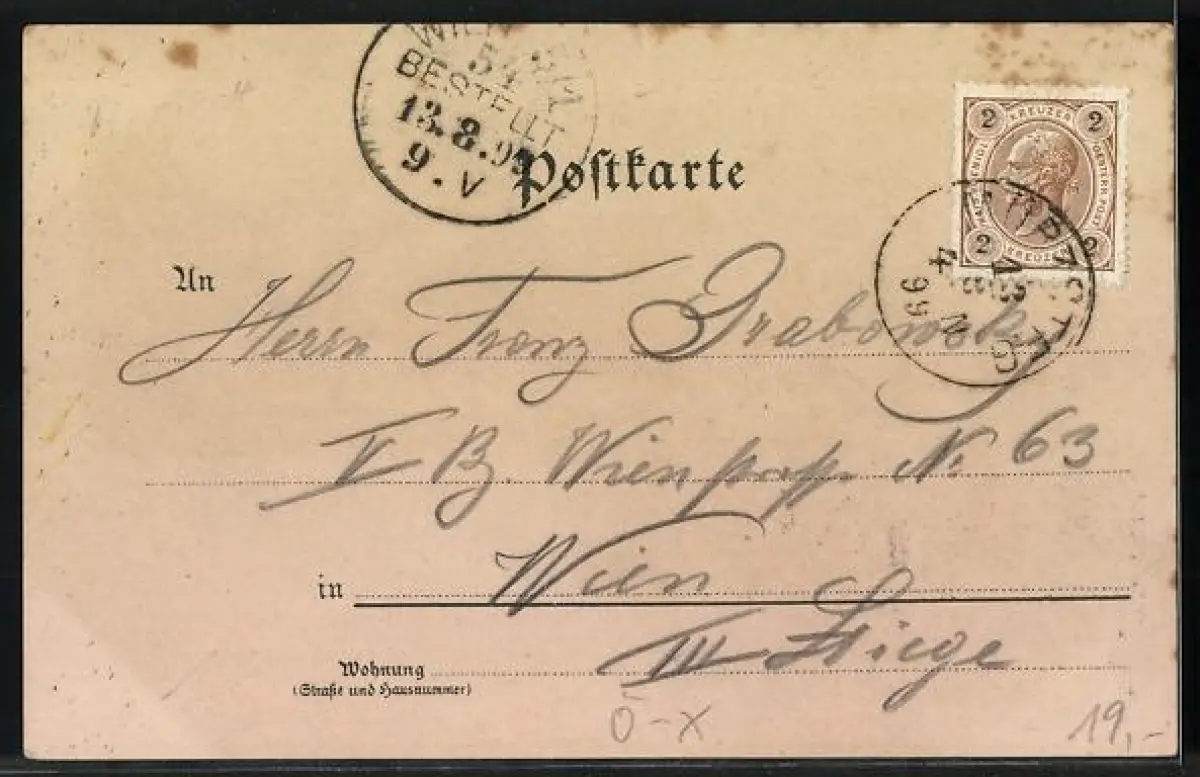 WIEN
BESTELLT
13.8.9
9.V
Postkarte
KREUZER
2 2
OESTERR. POST
2 2
KREUZER
99
An
Herrn Franz Grabowsky
V Bz. Wienstrasse No 63
in Wien
III Stiege
Wohnung
(Straße und Hausnummer)
Ö-X
19,-